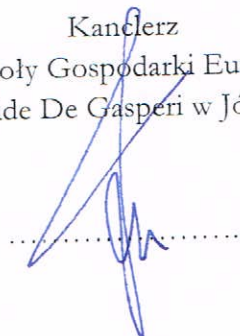 Kanclerz
oły Gospodarki Eu
de De Gasperi w Jó